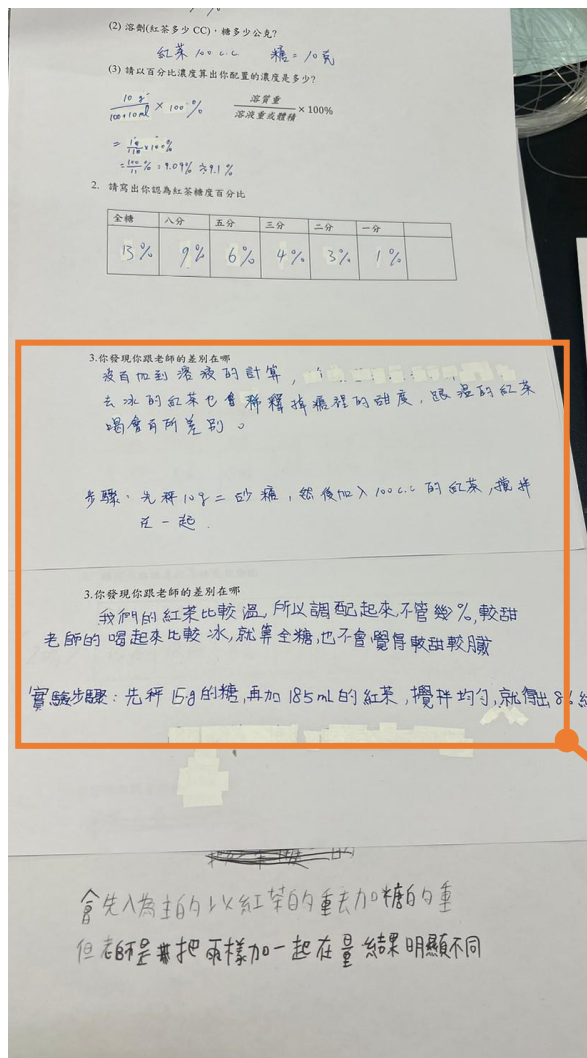 (2) 溶劑(紅茶多少 CC)，糖多少公克?
紅茶 100 c.c 糖 = 10克
(3) 請以百分比濃度算出你配置的濃度是多少?
10 g / 100+10ml × 100% 溶質重 / 溶液重或體積 × 100%
= 10/110 × 100%
= 100/11 % = 9.09% ≒ 9.1 %
2. 請寫出你認為紅茶糖度百分比
全糖 八分 五分 三分 二分 一分
13% 9% 6% 4% 3% 1%
3.你發現你跟老師的差別在哪
沒有加到溶液的計算，
去冰的紅茶也會稀釋掉糖裡的甜度，跟溫的紅茶
喝會有所差別。
步驟：先秤10g二砂糖，然後加入100c.c的紅茶，攪拌
在一起.
3.你發現你跟老師的差別在哪
我們的紅茶比較溫,所以調配起來,不管幾%,較甜
老師的喝起來比較冰,就算全糖,也不會覺得較甜較膩
實驗步驟：先秤15g的糖,再加185mL的紅茶,攪拌均勻,就得出8%
會先入為主的以紅茶的重去加糖的重
但老師是把兩樣加一起在量結果明顯不同